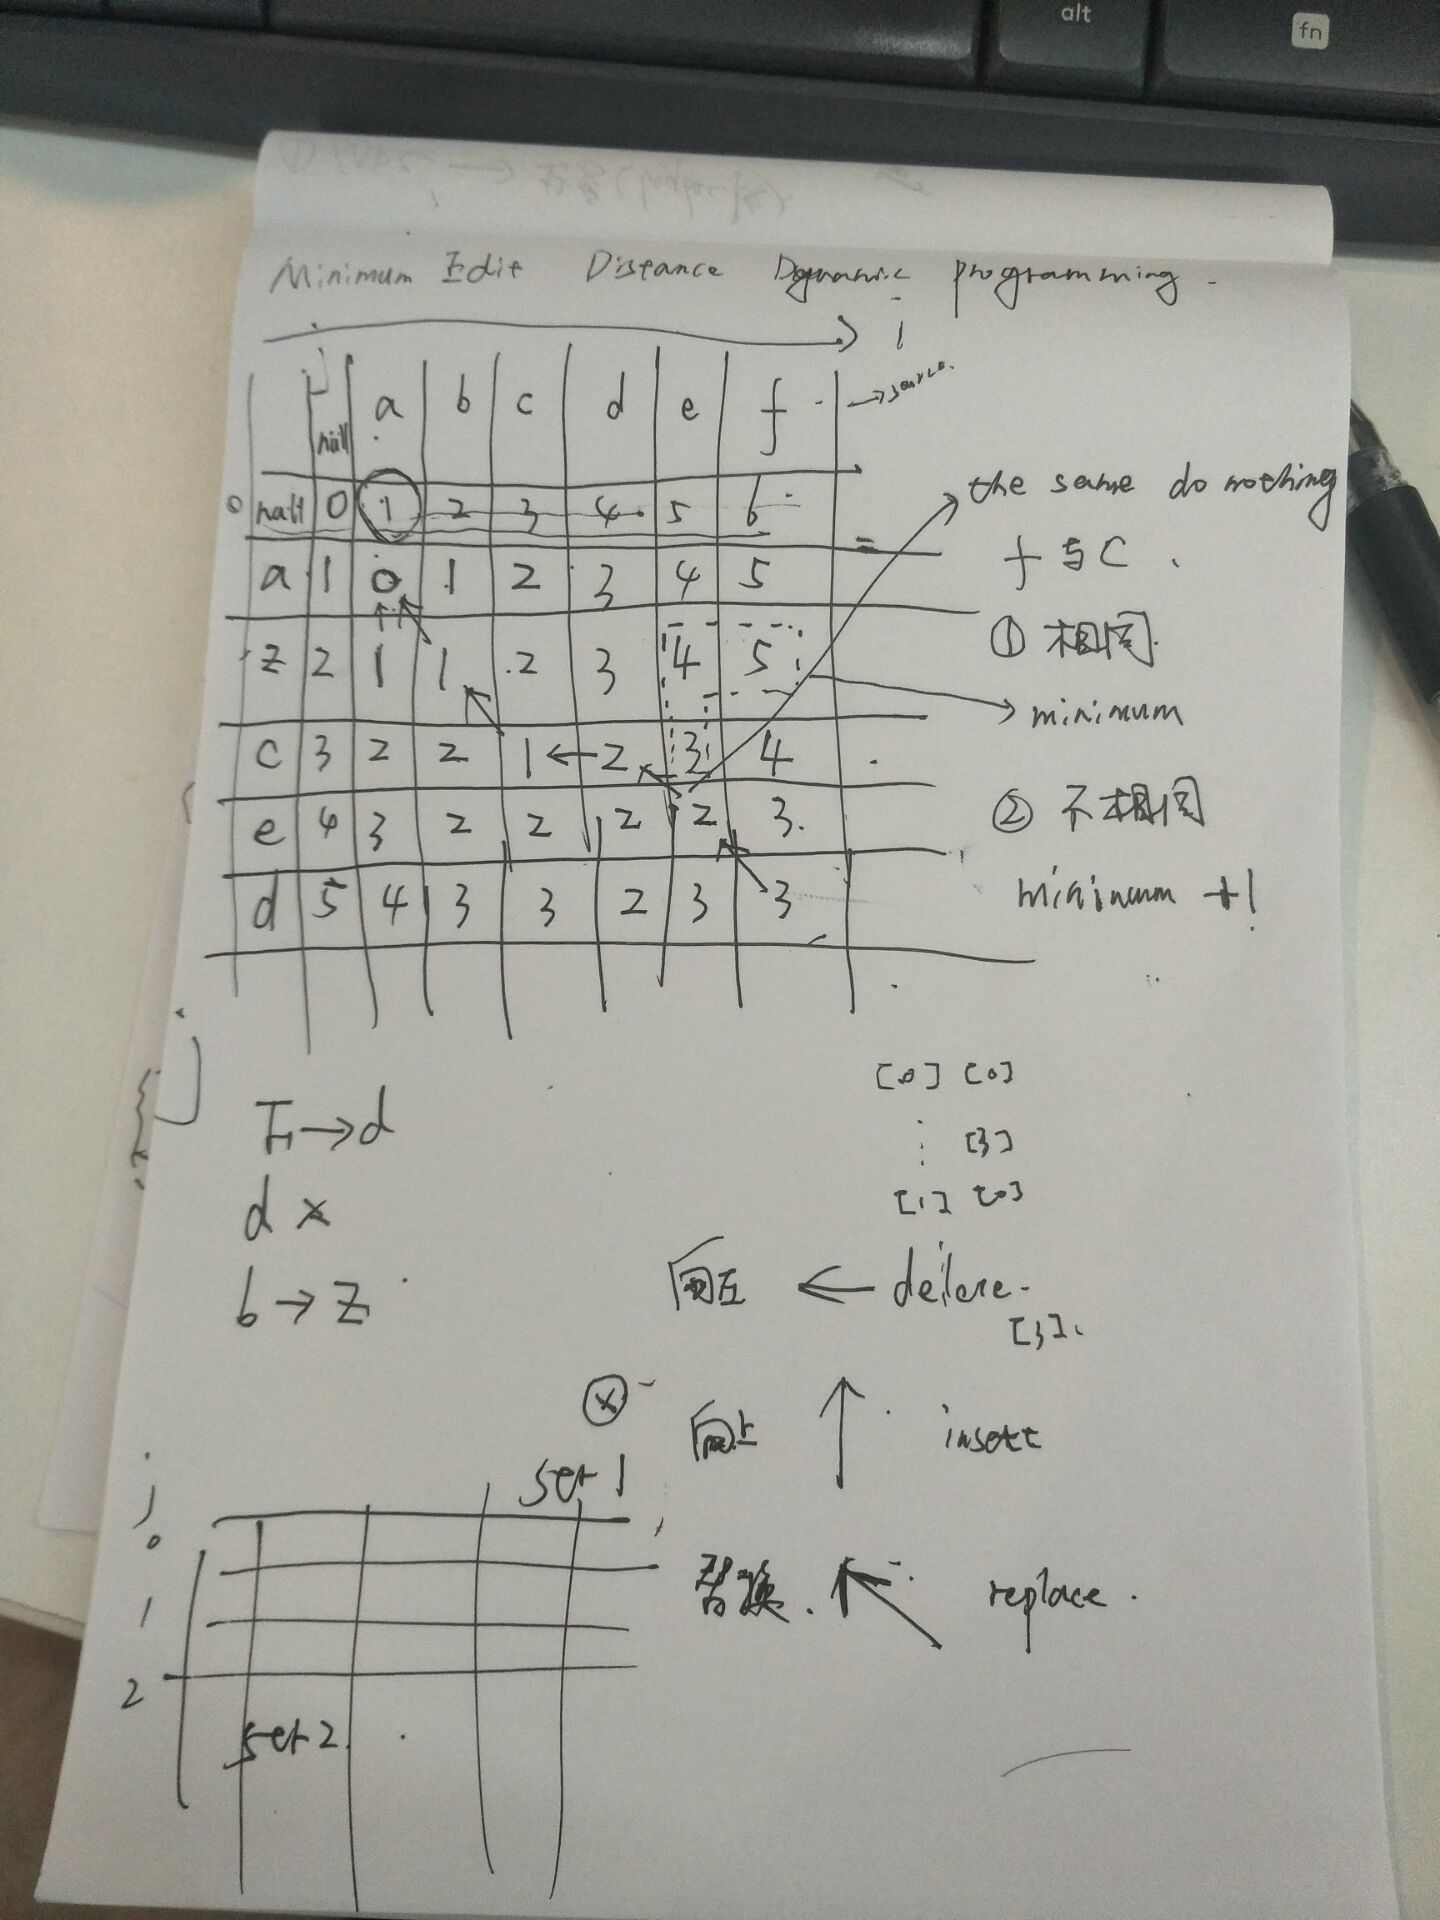 alt
fn
Minimum Edit Distance Dynamic programming.
i
null a b c d e f → source.
0 null 0 1 2 3 4 5 6
a 1 0 1 2 3 4 5
z 2 1 1 2 3 4 5
c 3 2 2 1 ← 2 3 4
e 4 3 2 2 2 2 3
d 5 4 3 3 2 3 3
the same do nothing
f 与 c
① 相同
minimum
② 不相同
minimum +1
F → d
d ×
b → z
[0] [0]
[3]
[1] [0]
向左 ← delete.
[3]
向上 ↑ insert
替换. ↖ replace.
set 1
j
0
1
2
set 2